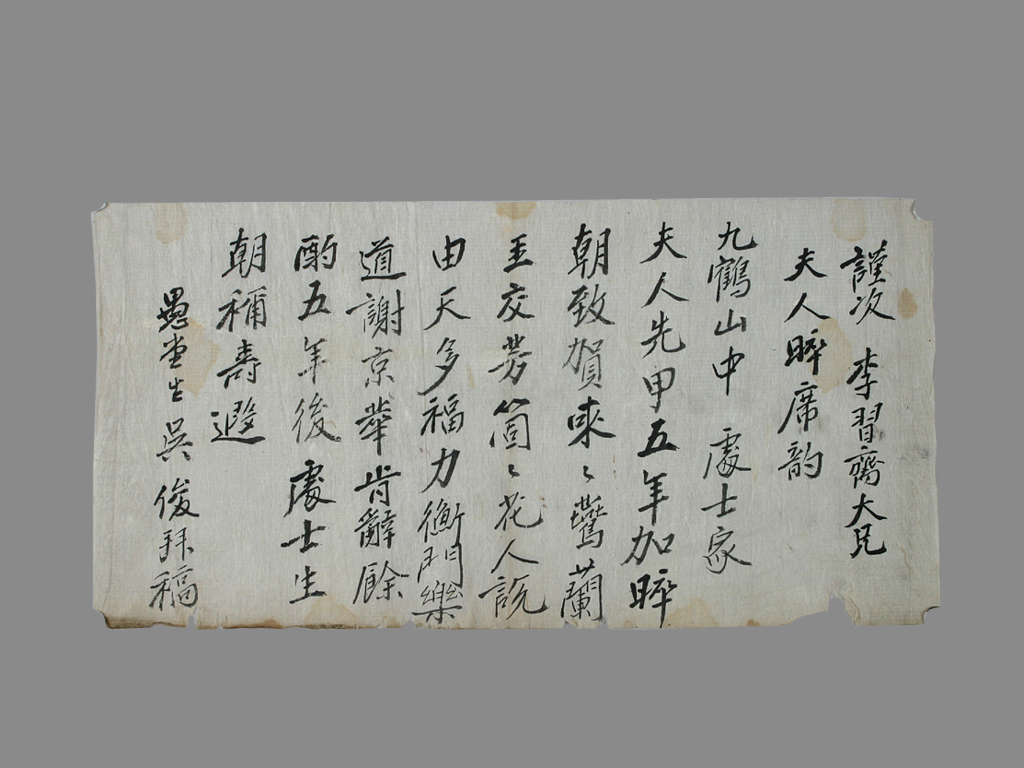 謹次 李習齋大兄
夫人晬席韵
九鶴山中 處士家
夫人先甲五年加晬
朝致賀〻蘭
玉交芳箇〻花人說
由天多福力衡門樂
道謝京華肯辭餘
酌五年後 處士生
朝稱壽遐
愚堂生 吳俊拜稿